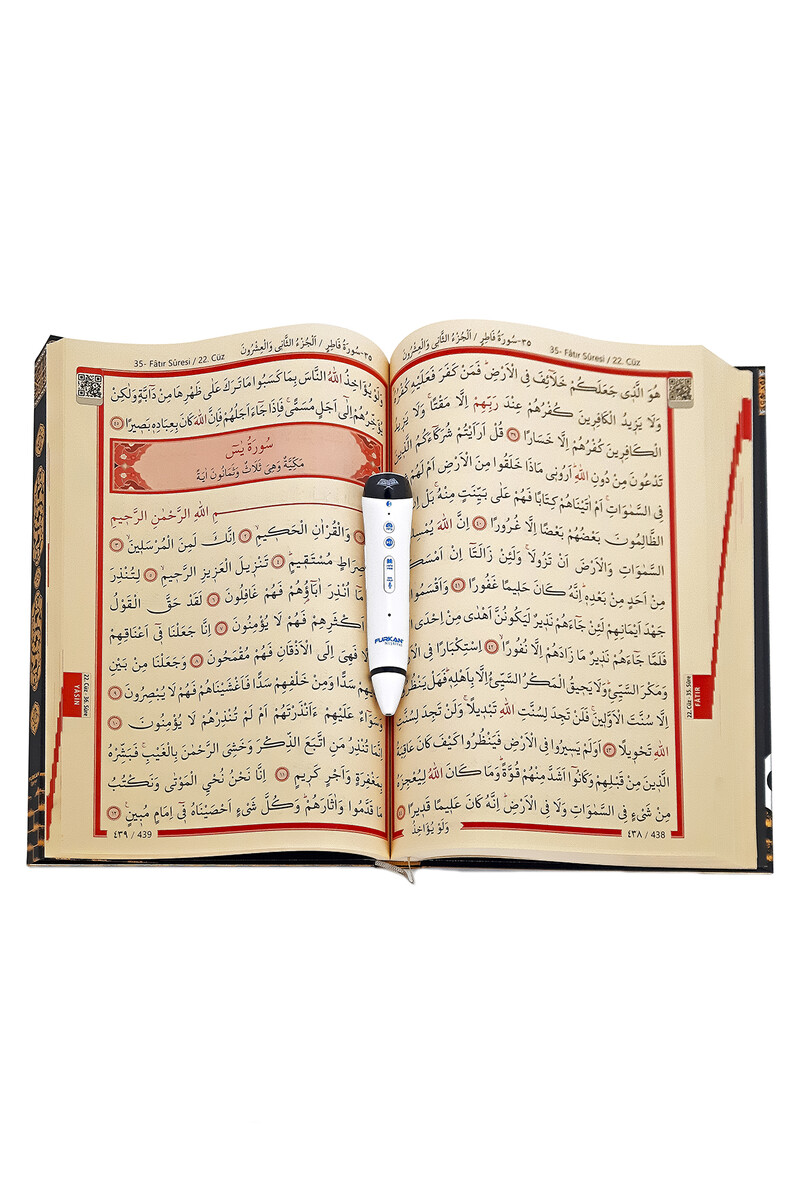 ٣٥-سُورَةُ فَاطِرٍ / اَلْجُزْءُ الثَّانِى وَالْعِشْرُونَ
35- Fâtır Sûresi / 22. Cüz
هُوَ الَّذٖى جَعَلَكُمْ خَلَٓائِفَ فِى الْاَرْضِ فَمَنْ كَفَرَ فَعَلَيْهِ كُفْرُهُ
وَلَا يَزٖيدُ الْكَافِرٖينَ كُفْرُهُمْ عِنْدَ رَبِّهِمْ اِلَّا مَقْتًا وَلَا يَزٖيدُ
الْكَافِرٖينَ كُفْرُهُمْ اِلَّا خَسَارًا ٣٩ قُلْ اَرَاَيْتُمْ شُرَكَٓاءَكُمُ الَّذٖينَ
تَدْعُونَ مِنْ دُونِ اللّٰهِ اَرُونٖى مَاذَا خَلَقُوا مِنَ الْاَرْضِ اَمْ لَهُمْ
فِى السَّمٰوَاتِ اَمْ اٰتَيْنَاهُمْ كِتَابًا فَهُمْ عَلٰى بَيِّنَتٍ مِنْهُ بَلْ اِنْ
الظَّالِمُونَ بَعْضُهُمْ بَعْضًا اِلَّا غُرُورًا ٤٠ اِنَّ اللّٰهَ
السَّمٰوَاتِ وَالْاَرْضَ اَنْ تَزُولَا وَلَئِنْ زَالَتَٓا اِنْ اَمْسَكَهُمَا
مِنْ اَحَدٍ مِنْ بَعْدِهٖ اِنَّهُ كَانَ حَلٖيمًا غَفُورًا ٤١ وَاَقْسَمُوا
جَهْدَ اَيْمَانِهِمْ لَئِنْ جَٓاءَهُمْ نَذٖيرٌ لَيَكُونُنَّ اَهْدٰى مِنْ اِحْدَى
فَلَمَّا جَٓاءَهُمْ نَذٖيرٌ مَا زَادَهُمْ اِلَّا نُفُورًا ٤٢ اِسْتِكْبَارًا فِى
وَمَكْرَ السَّيِّئِ وَلَا يَحٖيقُ الْمَكْرُ السَّيِّئُ اِلَّا بِاَهْلِهٖ فَهَلْ يَنْظُرُونَ
اِلَّا سُنَّتَ الْاَوَّلٖينَ فَلَنْ تَجِدَ لِسُنَّتِ اللّٰهِ تَبْدٖيلًا وَلَنْ تَجِدَ لِسُنَّتِ
اللّٰهِ تَحْوٖيلًا ٤٣ اَوَلَمْ يَسٖيرُوا فِى الْاَرْضِ فَيَنْظُرُوا كَيْفَ كَانَ عَاقِبَةُ
الَّذٖينَ مِنْ قَبْلِهِمْ وَكَانُٓوا اَشَدَّ مِنْهُمْ قُوَّةً وَمَا كَانَ اللّٰهُ لِيُعْجِزَهُ
مِنْ شَىْءٍ فِى السَّمٰوَاتِ وَلَا فِى الْاَرْضِ اِنَّهُ كَانَ عَلٖيمًا قَدٖيرًا ٤٤
وَلَوْ يُؤَاخِذُ
٤٣٨ / 438
22. Cüz - 35. Sûre
FATIR
٣٥-سُورَةُ فَاطِرٍ / اَلْجُزْءُ الثَّانِى وَالْعِشْرُونَ
35- Fâtır Sûresi / 22. Cüz
وَلَوْ يُؤَاخِذُ اللّٰهُ النَّاسَ بِمَا كَسَبُوا مَا تَرَكَ عَلٰى ظَهْرِهَا مِنْ دَٓابَّةٍ وَلٰكِنْ
يُؤَخِّرُهُمْ اِلٰٓى اَجَلٍ مُسَمًّى فَاِذَا جَٓاءَ اَجَلُهُمْ فَاِنَّ اللّٰهَ كَانَ بِعِبَادِهٖ بَصٖيرًا ٤٥
سُورَةُ يٰسٓ
مَكِّيَّةٌ وَهِىَ ثَلَاثٌ وَثَمَانُونَ اٰيَةً
ـمِ اللّٰهِ الرَّحْمٰنِ الرَّحٖيمِ
وَالْقُرْاٰنِ الْحَكٖيمِ ٢ اِنَّكَ لَمِنَ الْمُرْسَلٖينَ ٣
صِرَاطٍ مُسْتَقٖيمٍ ٤ تَنْزٖيلَ الْعَزٖيزِ الرَّحٖيمِ ٥ لِتُنْذِرَ
مَٓا اُنْذِرَ اٰبَٓاؤُهُمْ فَهُمْ غَافِلُونَ ٦ لَقَدْ حَقَّ الْقَوْلُ
اَكْثَرِهِمْ فَهُمْ لَا يُؤْمِنُونَ ٧ اِنَّا جَعَلْنَا فٖٓى اَعْنَاقِهِمْ
فَهِىَ اِلَى الْاَذْقَانِ فَهُمْ مُقْمَحُونَ ٨ وَجَعَلْنَا مِنْ بَيْنِ
سَدًّا وَمِنْ خَلْفِهِمْ سَدًّا فَاَغْشَيْنَاهُمْ فَهُمْ لَا يُبْصِرُونَ ٩
وَسَوَٓاءٌ عَلَيْهِمْ ءَاَنْذَرْتَهُمْ اَمْ لَمْ تُنْذِرْهُمْ لَا يُؤْمِنُونَ ١٠
اِنَّمَا تُنْذِرُ مَنِ اتَّبَعَ الذِّكْرَ وَخَشِىَ الرَّحْمٰنَ بِالْغَيْبِ فَبَشِّرْهُ
بِمَغْفِرَةٍ وَاَجْرٍ كَرٖيمٍ ١١ اِنَّا نَحْنُ نُحْىِ الْمَوْتٰى وَنَكْتُبُ
مَا قَدَّمُوا وَاٰثَارَهُمْ وَكُلَّ شَىْءٍ اَحْصَيْنَاهُ فٖٓى اِمَامٍ مُبٖينٍ ١٢
٤٣٩ / 439
22. Cüz - 36. Sûre
YASİN
FURKAN